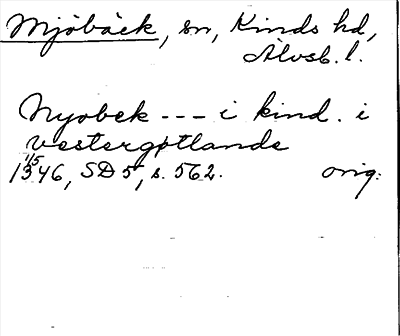 Mjöbäck, sn, Kinds hd,
Älvsb. l.
Nyobek --- i kind. i
vestergøtlande
1/5
1346, SD 5, s. 562. orig.